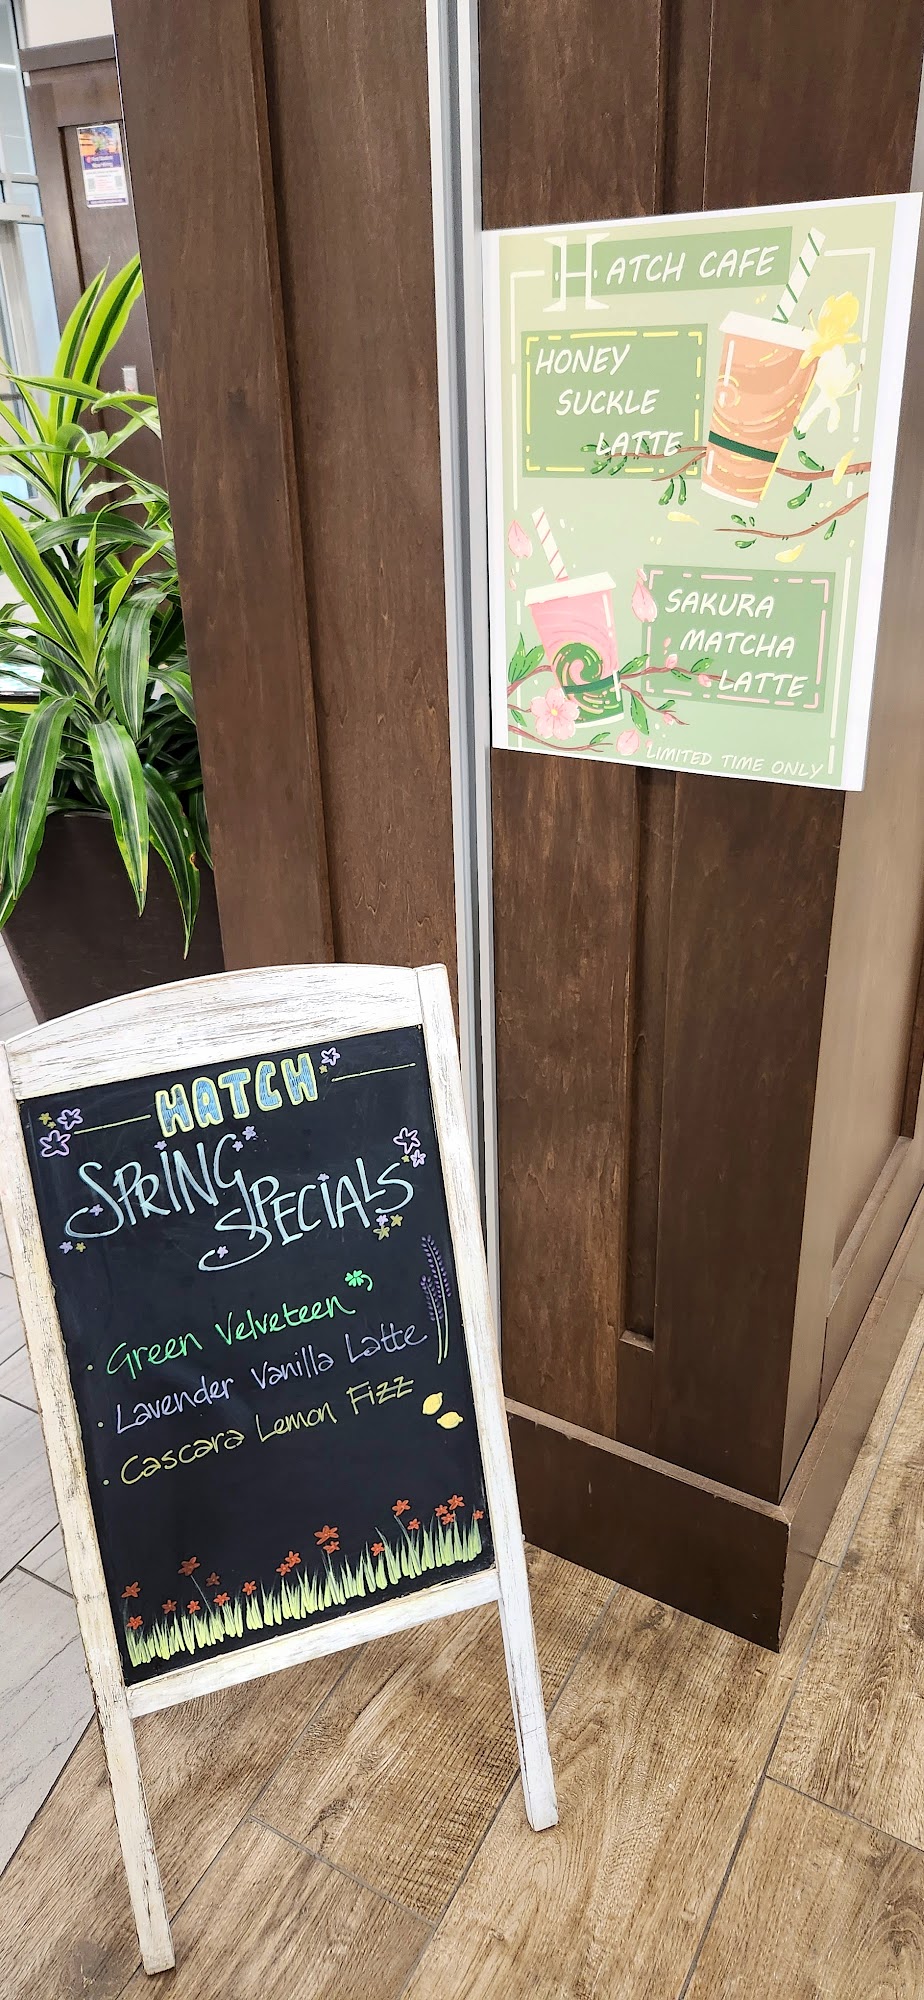 HATCH CAFE
HONEY
SUCKLE
LATTE
SAKURA
MATCHA
LATTE
LIMITED TIME ONLY
HATCH
SPRING
SPECIALS
• Green Velveteen
• Lavender Vanilla Latte
• Cascara Lemon Fizz